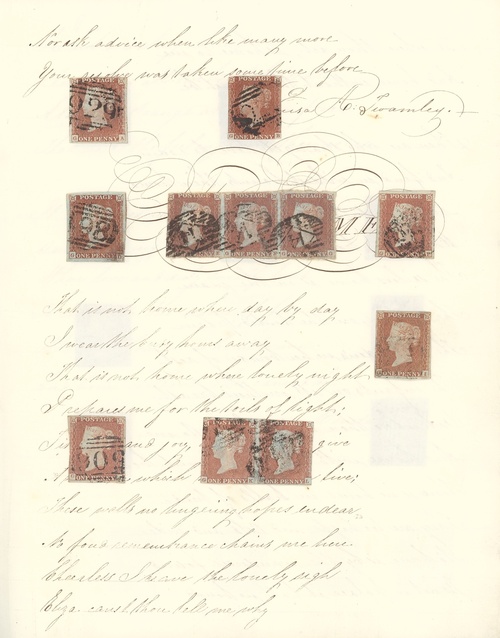 Nor ask advice when like many more
Your resolve was taken some time before
Louisa A. Twamley.
POSTAGE
ONE PENNY
POSTAGE
ONE PENNY
POSTAGE
ONE PENNY
POSTAGE POSTAGE POSTAGE
ONE PENNY ONE PENNY ONE PENNY
ME
POSTAGE
ONE PENNY
That is not home where day by day
POSTAGE
ONE PENNY
I wear the busy hours away
That is not home where lonely night
Prepares me for the toils of light;
POSTAGE
ONE PENNY
and joy give
POSTAGE POSTAGE
ONE PENNY ONE PENNY
which live;
These walls no lingering hopes endear
No fond remembrance chains me here
Cheerless I heave the lonely sigh
Eliza canst thou tell me why